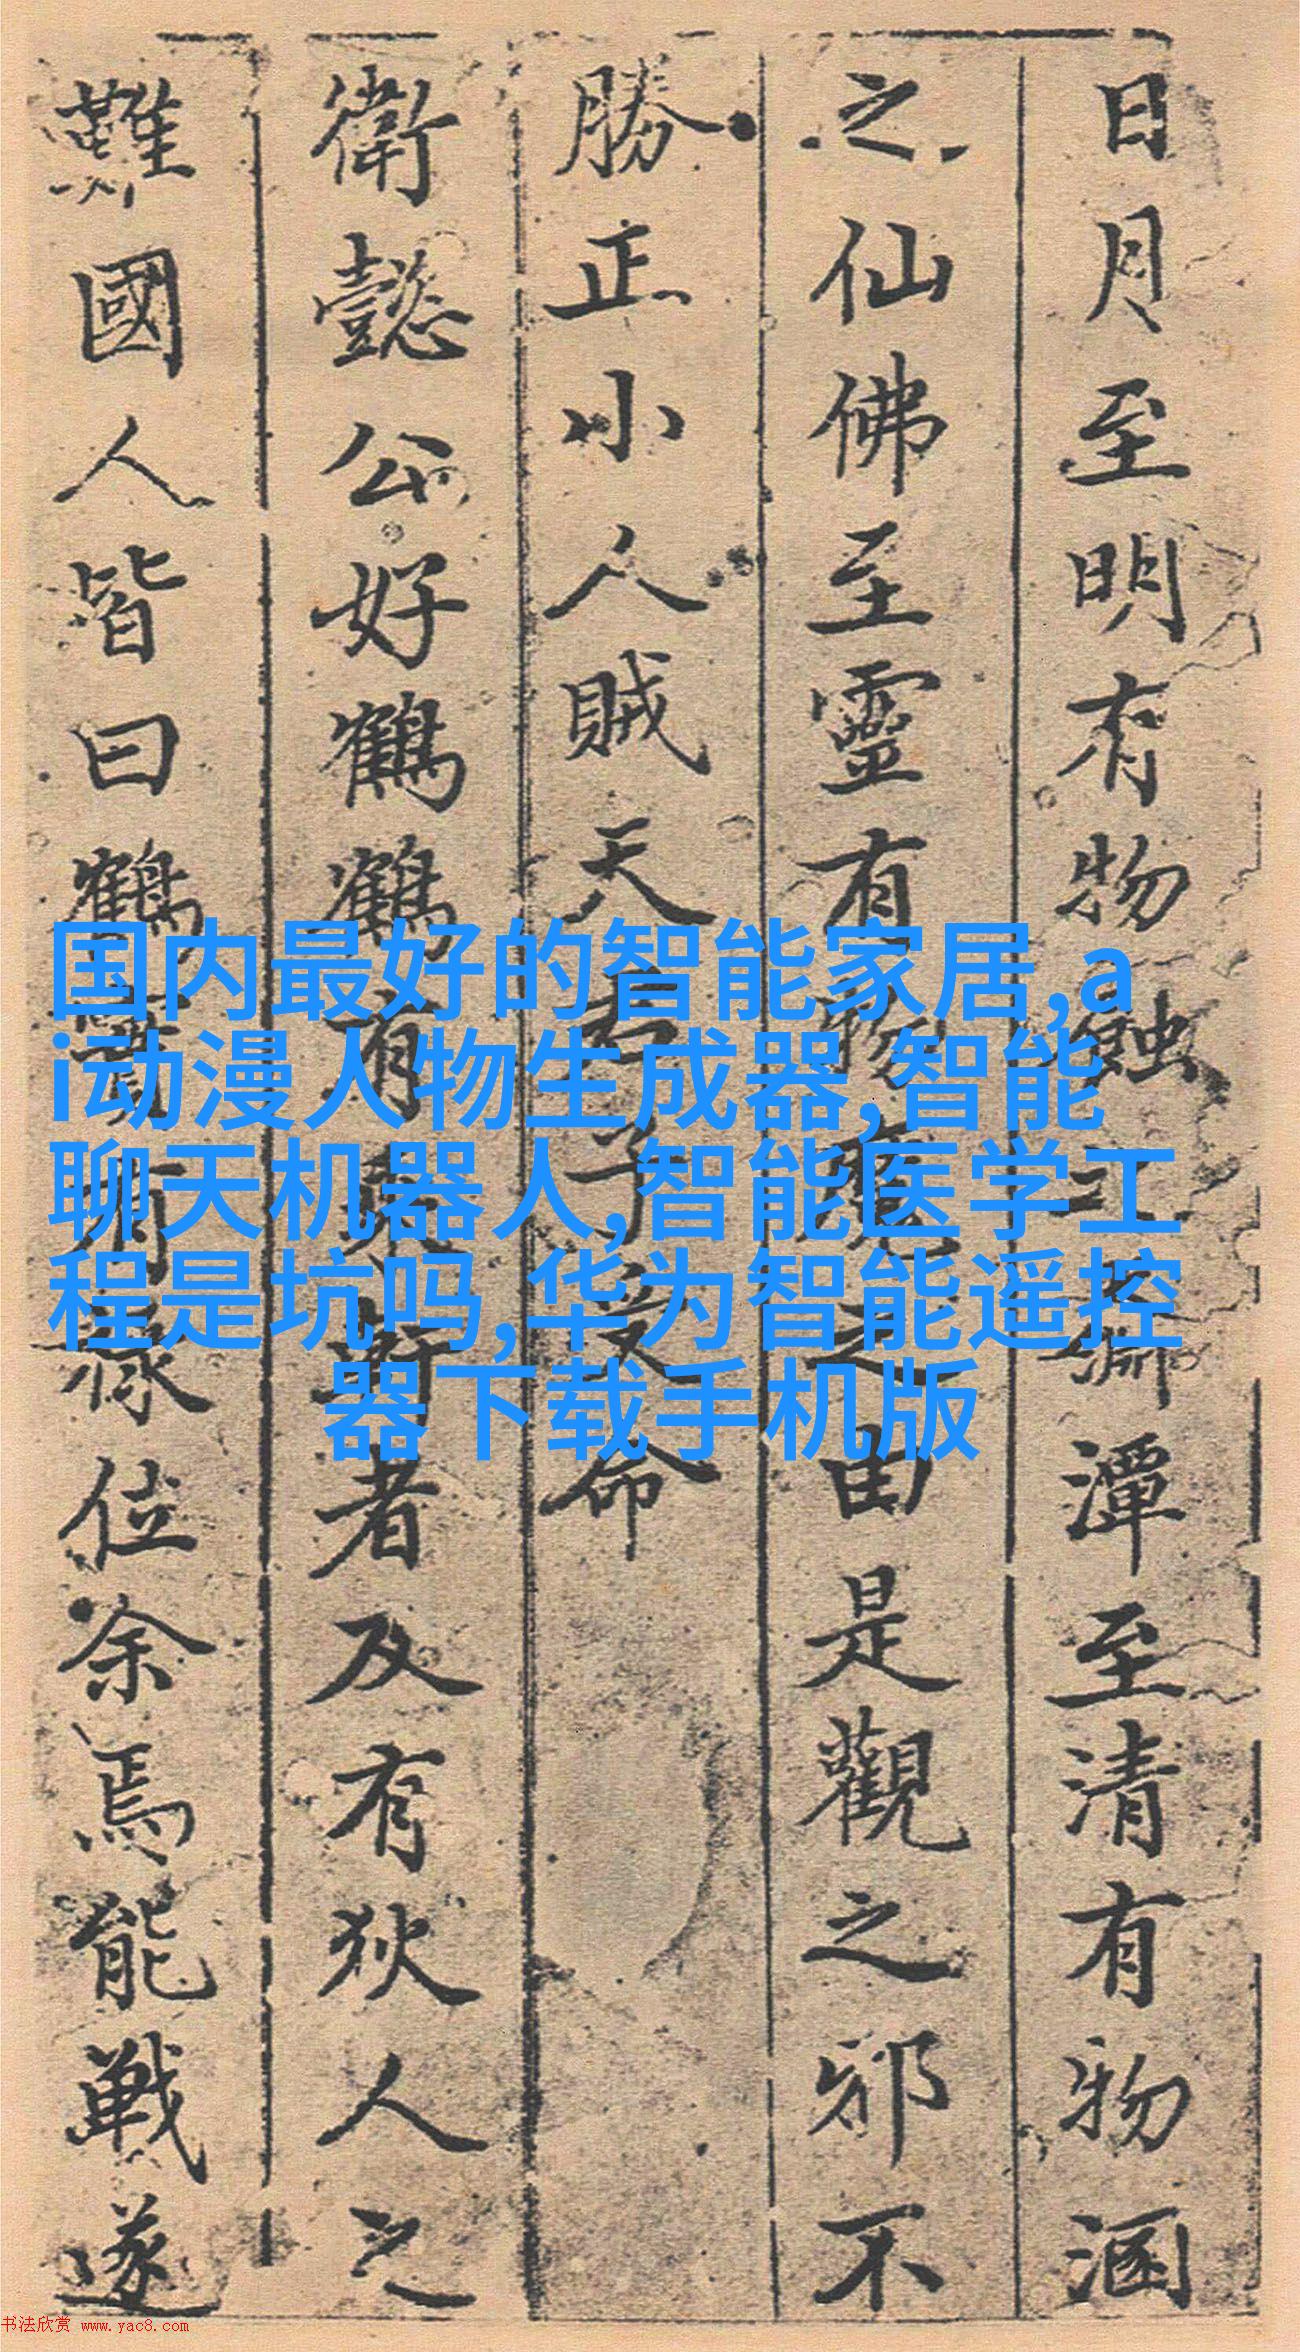 日月至明有物蝕淵潭至清有物涵
之仙佛至靈有物之由是觀之邪不
勝正小人賊天子受命
衛懿公好鶴鶴有乘軒者及有狄人之
難國人皆曰鶴實有祿位余焉能戰遂
国内最好的智能家居,a
i动漫人物生成器,智能
聊天机器人,智能医学工
程是坑吗,华为智能遥控
器下载手机版
书法欣赏 www.yac8.com